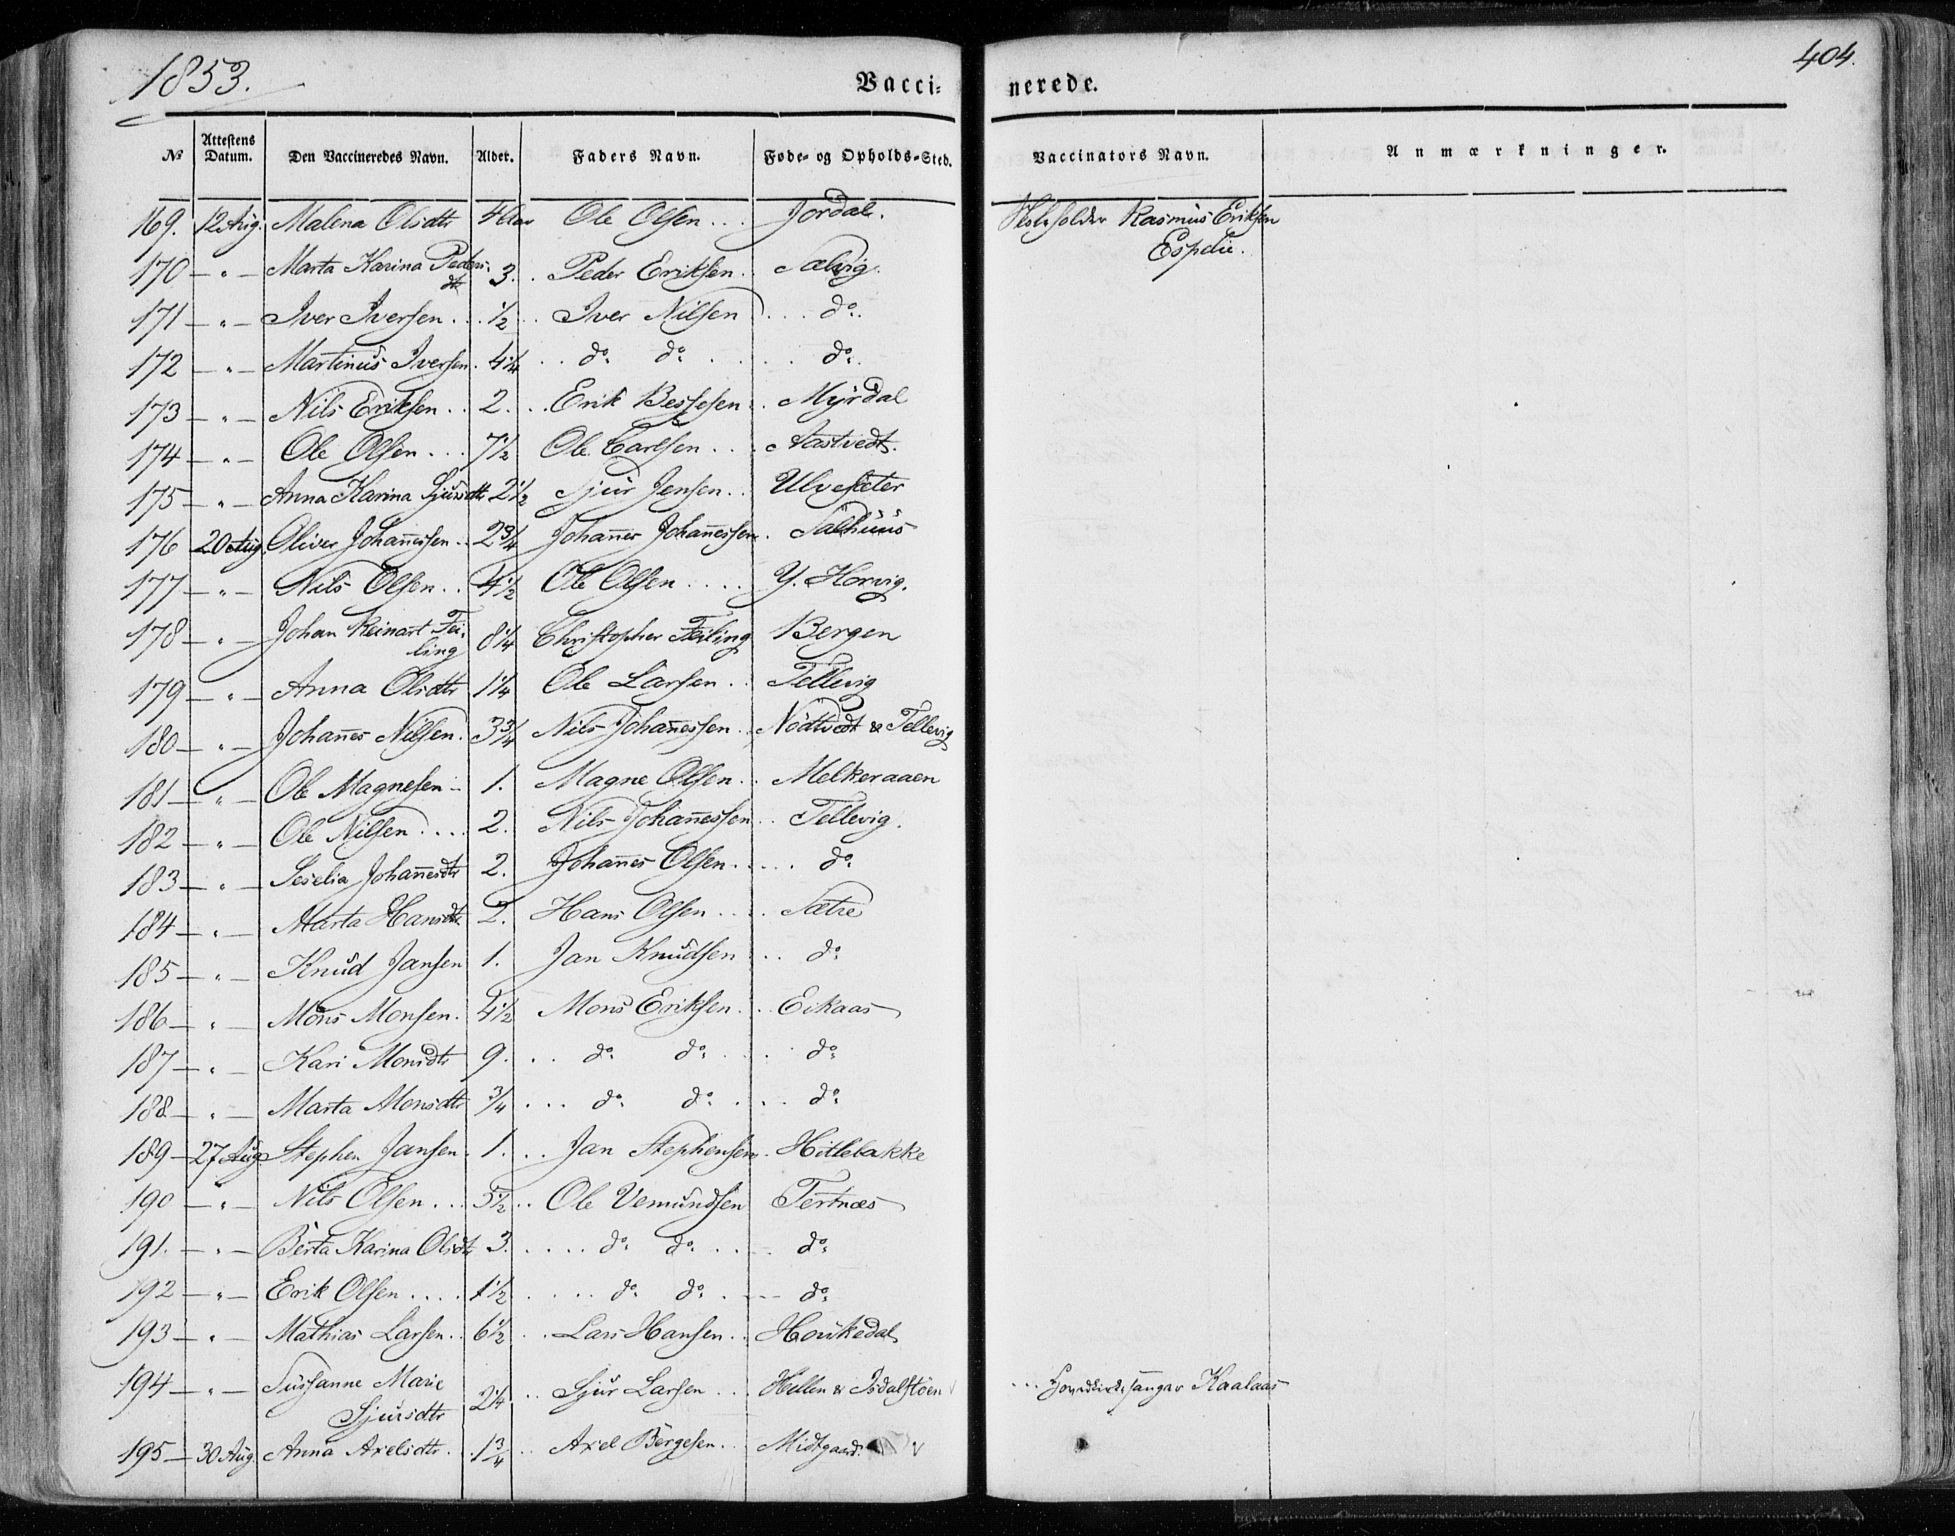 1853. Vacci- nerede. 404.
№ Attestens Datum. Den Vaccineredes Navn. Alder. Faders Navn. Føde- og Opholds-Sted. Vaccinators Navn. Anmærkninger.
169. 12 Aug. Malena Olsdtr 4 Aar Ole Olsen... Jordal. Skoleholder Rasmus Eriksen
Espelie.
170 — " — Marta Karina Peders-
dtr 3.. Peder Eriksen. Sælvig.
171 — " — Iver Iversen... ½.. Iver Nilsen... do.
172 — " — Martinus Iversen. 4¼.. do. do... do.
173 — " — Nils Eriksen.. 2... Erik Bessesen.. Myrdal
174 — " — Ole Olsen... 7½ Ole Carlsen... Aastvedt.
175 — " — Anna Karina Sjursdtr 2½ Sjur Jensen.. Ulvesæter
176 20 Aug. Oliver Johannessen.. 2¾ Johannes Johannessen. Salhuus
177 — " — Nils Olsen.. 4½ Ole Olsen.... Y. Horvig.
178 — " — Johan Reinart Fei-
ling 8¼ Christopher Feiling Bergen
179 — " — Anna Olsdtr 1¼ Ole Larsen.. Tellevig
180 — " — Johannes Nilsen. 3¾ Nils Johannessen.. Nödtvedt & Tellevig
181 — " — Ole Magnesen - 1. Magne Olsen.. Melkeraaen
182 — " — Ole Nilsen.... 2. Nils Johannessen.. Tellevig.
183 — " — Seselia Johannesdtr 2. Johannes Olsen..... do.
184 — " — Marta Hansdtr 2. Hans Olsen.... Sætre
185 — " — Knud Jansen 1. Jan Knudsen... do.
186 — " — Mons Monsen. 4½ Mons Eriksen... Eikaas
187 — " — Kari Monsdtr 9... do. do... do.
188 — " — Marta Monsdtr ¾... do. do.... do.
189 — 27 Aug. Stephen Jansen. 1... Jan Stephensen. Hitlebakke
190 — " — Nils Olsen... 5½.. Ole Vemundsen Tertnæs
191. — " — Berta Karina Olsdtr 3..... do. do.... do.
192 — " — Erik Olsen.... 1½.... do. do.... do.
193 — " — Mathias Larsen.. 6½.. Lars Hansen.. Houkedal
194 — " — Susanne Marie
Sjursdtr 2¼.. Sjur Larsen... Hellen & Isdalstöen ... Kaalaas
195 — 30 Aug. Anna Axelsdtr.. 1¾.. Axel Börgesen.. Midtgaard.